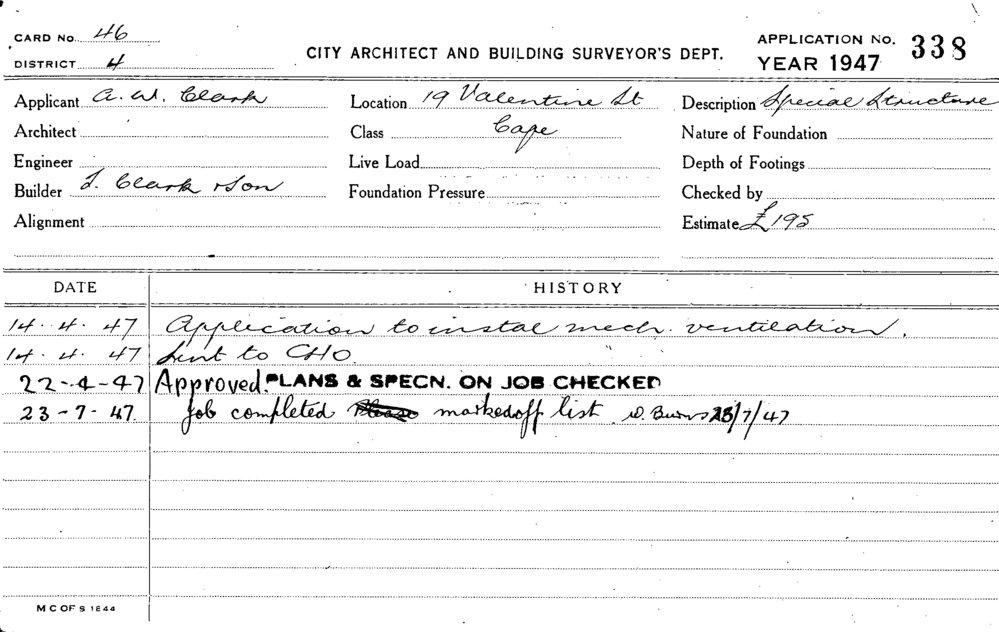 CARD No. 46
DISTRICT 4
CITY ARCHITECT AND BUILDING SURVEYOR'S DEPT.
APPLICATION NO. 338
YEAR 1947
Applicant A. W. Clark Location 19 Valentine St Description Special Structure
Architect Class Cafe Nature of Foundation
Engineer Live Load Depth of Footings
Builder Clark & Son Foundation Pressure Checked by
Alignment Estimate £195
DATE HISTORY
14. 4. 47 Application to instal mech. ventilation.
14. 4. 47 Sent to CHO
22-4-47 Approved. PLANS & SPECN. ON JOB CHECKED
23-7-47. Job completed marked off list W. Burns 23/7/47
M C OF S 1844